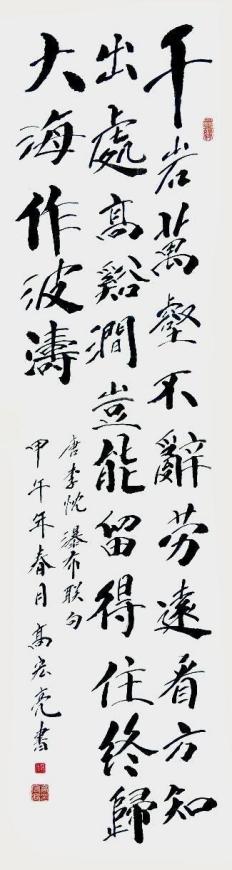 千岩萬壑不辭勞遠看方知
出處高谿澗豈能留得住終歸
大海作波濤
唐李忱瀑布联句
甲午年春月高宏亮書